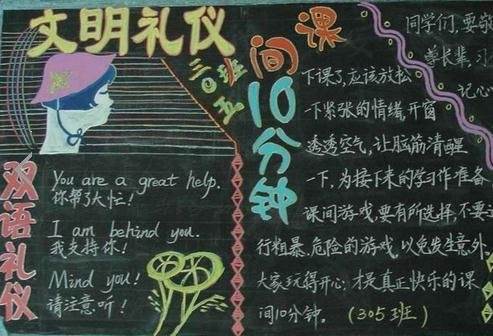 文明礼仪
三〇五班
双语礼仪
You are a great help.
你帮了大忙！
I am behind you.
我支持你！
Mind you!
请注意听！
课间10分钟
下课了，应该放松
一下紧张的情绪，开窗
透透空气，让脑筋清醒
一下，为接下来的学习作准备。
课间游戏，要有所选择，不要
行粗暴、危险的游戏，以免发生意外。
大家玩得开心，才是真正快乐的课
间10分钟。（305班）
同学们，要
尊长辈，习
记心